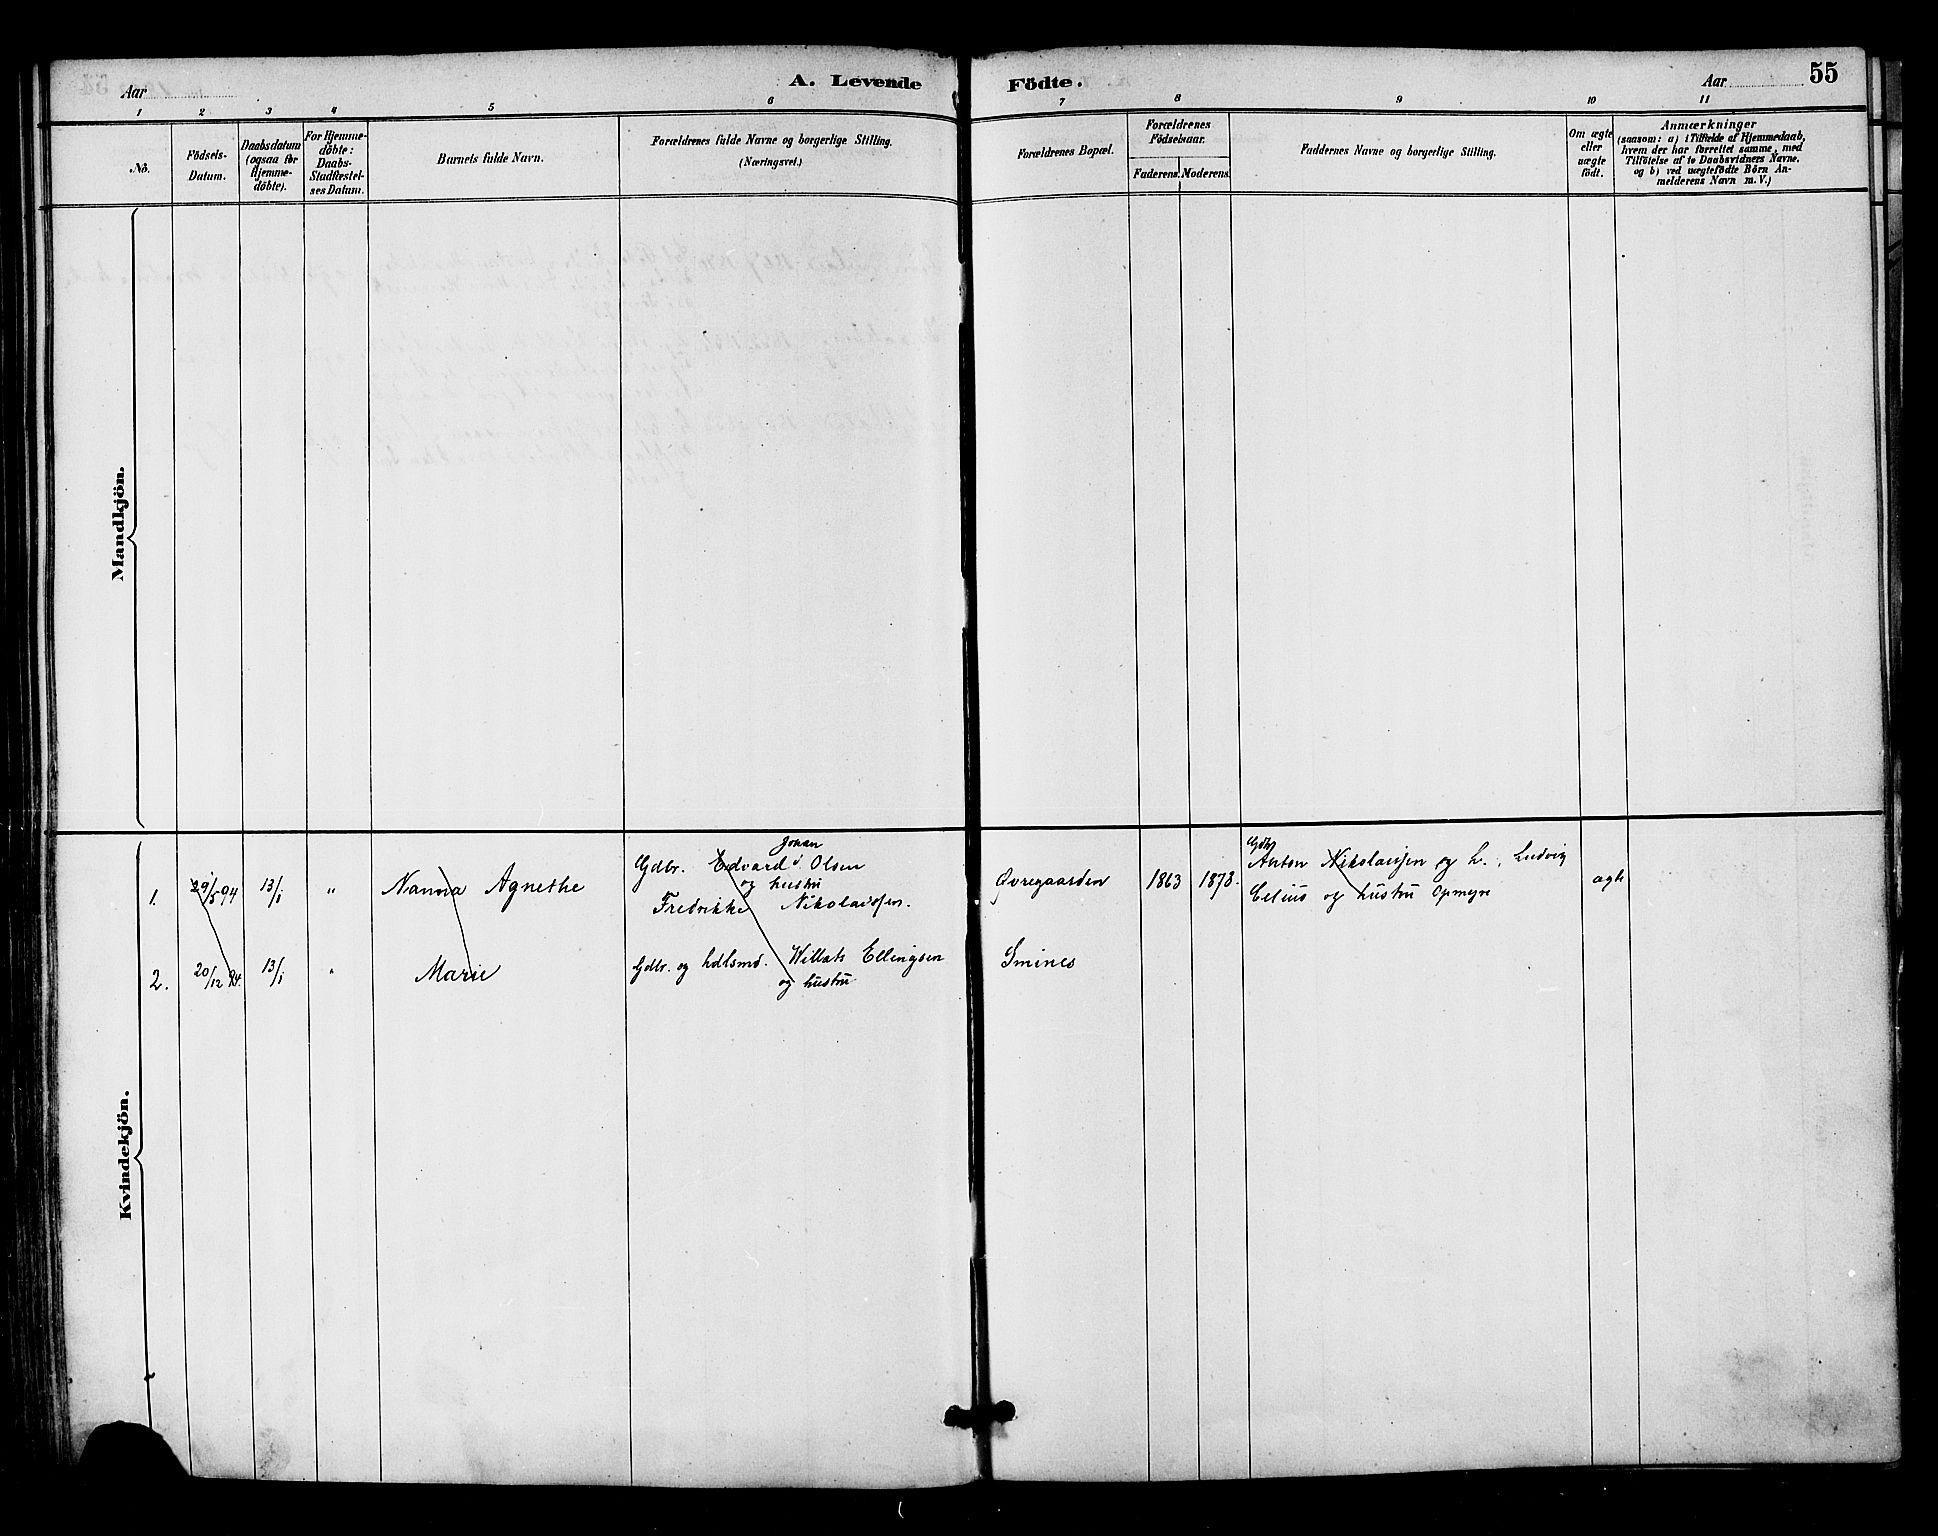 Aar
A. Levende
Födte.
Aar
55
1 2 3 4 5 6 7 8 9 10 11
No.
Födsels-
Datum.
Daabsdatum
(ogsaa for
Hjemme-
döbte).
For Hjemme-
döbte:
Daabs-
Stadfæstel-
ses Datum.
Barnets fulde Navn.
Forældrenes fulde Navne og borgerlige Stilling.
(Næringsvei.)
Forældrenes Bopæl.
Forældrenes
Födselsaar.
Faderens. Moderens.
Faddernes Navne og borgerlige Stilling.
Om ægte
eller
uægte
födt.
Anmærkninger
(saasom: a) i Tilfælde af Hjemmedaab,
hvem der har forrettet samme, med
Tilföielse af to Daabsvidners Navne.
og b) ved uægtefödte Börn An-
melderens Navn m. V.)
Mandkjön.
Kvindekjön.
1. 29/5 94 13/1 " Nanna Agnethe
Gdbr. Edvard Johan Olsen
og hustru
Fredrikke Nikolaisen.
Øvregaarden 1863 1873.
Gdbr
Anton Nikolaisen og h., Ludvig
Celius og hustru Opmyre
ægte
2. 20/12 94. 13/1 " Marie
Gdbr. og hdlsmd. Willats Ellingsen
og hustru
Smines